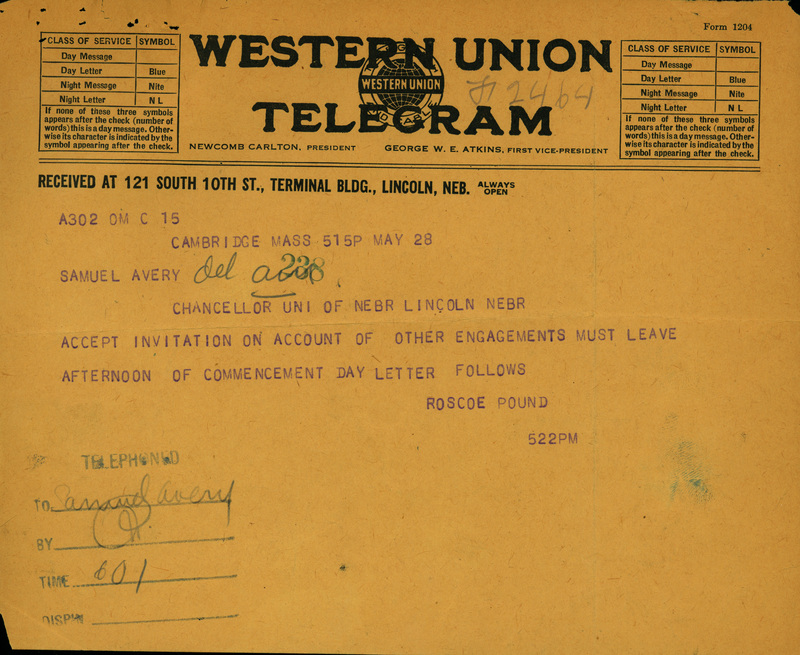 Form 1204
CLASS OF SERVICE SYMBOL
Day Message
Day Letter Blue
Night Message Nite
Night Letter N L
If none of these three symbols
appears after the check (number of
words) this is a day message. Other-
wise its character is indicated by the
symbol appearing after the check.
WESTERN UNION
WESTERN UNION
TELEGRAM
NEWCOMB CARLTON, PRESIDENT GEORGE W. E. ATKINS, FIRST VICE-PRESIDENT
CLASS OF SERVICE SYMBOL
Day Message
Day Letter Blue
Night Message Nite
Night Letter N L
If none of these three symbols
appears after the check (number of
words) this is a day message. Other-
wise its character is indicated by the
symbol appearing after the check.
2464
RECEIVED AT 121 SOUTH 10TH ST., TERMINAL BLDG., LINCOLN, NEB. ALWAYS OPEN
A302 OM C 15
CAMBRIDGE MASS 515P MAY 28
SAMUEL AVERY Del 238
CHANCELLOR UNI OF NEBR LINCOLN NEBR
ACCEPT INVITATION ON ACCOUNT OF OTHER ENGAGEMENTS MUST LEAVE
AFTERNOON OF COMMENCEMENT DAY LETTER FOLLOWS
ROSCOE POUND
522PM
TELEPHONED
TO Samuel Avery
BY
TIME 601
DISP'N